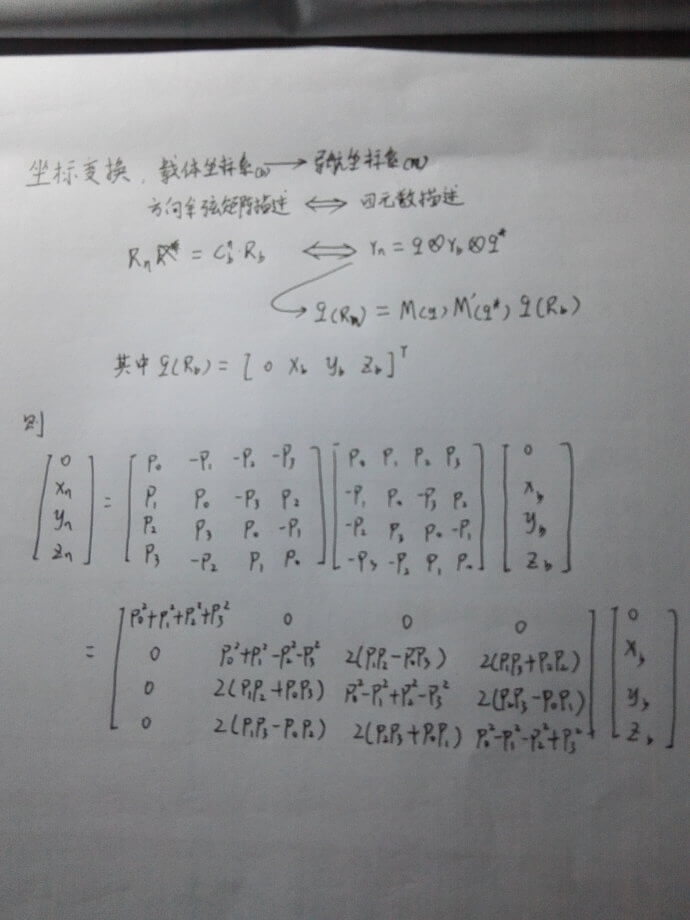 坐标变换. 载体坐标系(b) → 导航坐标系(n)
方向余弦矩阵描述 ⟺ 四元数描述
Rn = Cbⁿ·Rb ⟺ rn = q⊗rb⊗q*
q(Rn) = M(q) M'(q*) q(Rb)
其中 q(Rb) = [0 xb yb zb]ᵀ
则
[0 xn yn zn] = [P₀ -P₁ -P₂ -P₃; P₁ P₀ -P₃ P₂; P₂ P₃ P₀ -P₁; P₃ -P₂ P₁ P₀] [P₀ P₁ P₂ P₃; -P₁ P₀ -P₃ P₂; -P₂ P₃ P₀ -P₁; -P₃ -P₂ P₁ P₀] [0 xb yb zb]
= [P₀²+P₁²+P₂²+P₃² 0 0 0; 0 P₀²+P₁²-P₂²-P₃² 2(P₁P₂-P₀P₃) 2(P₁P₃+P₀P₂); 0 2(P₁P₂+P₀P₃) P₀²-P₁²+P₂²-P₃² 2(P₂P₃-P₀P₁); 0 2(P₁P₃-P₀P₂) 2(P₂P₃+P₀P₁) P₀²-P₁²-P₂²+P₃²] [0 xb yb zb]